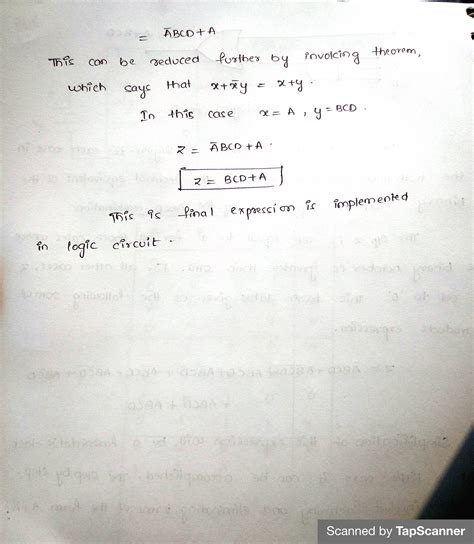 = A̅BCD+A
This can be reduced further by invoking theorem,
which says that x+x̅y = x+y.
In this case x=A, y=BCD.
Z = A̅BCD+A.
Z = BCD+A
This is final expression is implemented
in logic circuit.
Scanned by TapScanner